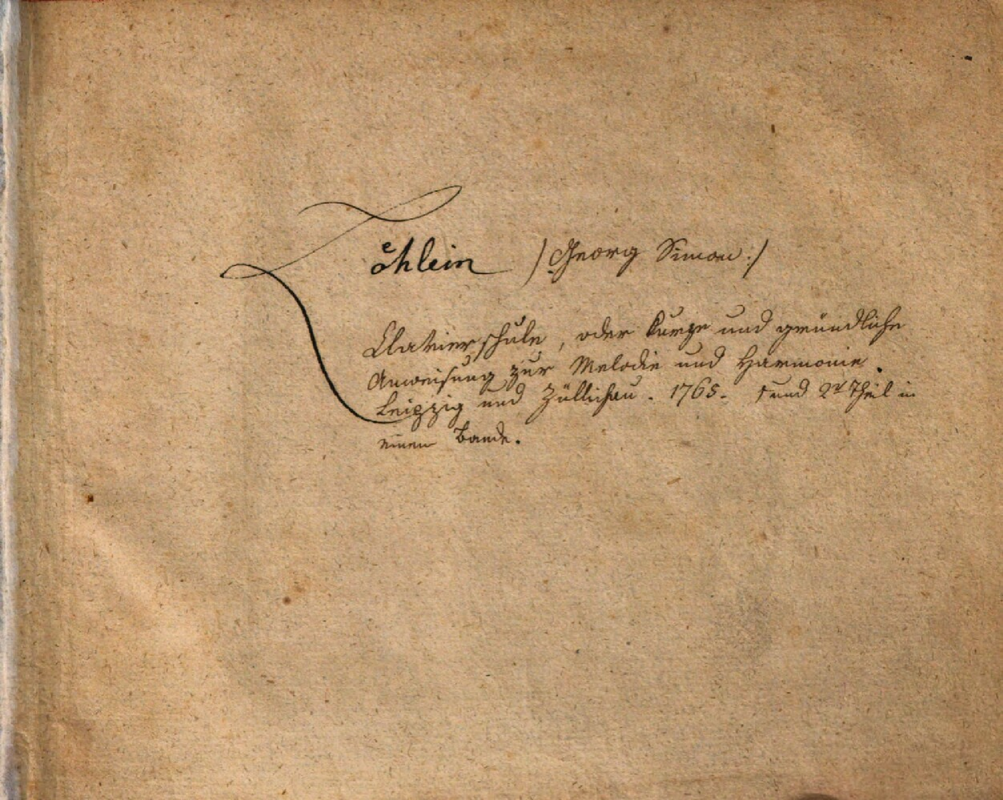 Löhlein /Georg Simon:/
Clavierschule, oder kurze und gründliche
Anweisung zur Melodie und Harmonie.
Leipzig und Züllichau. 1765. 1 und 2r Theil in
einem Bande.